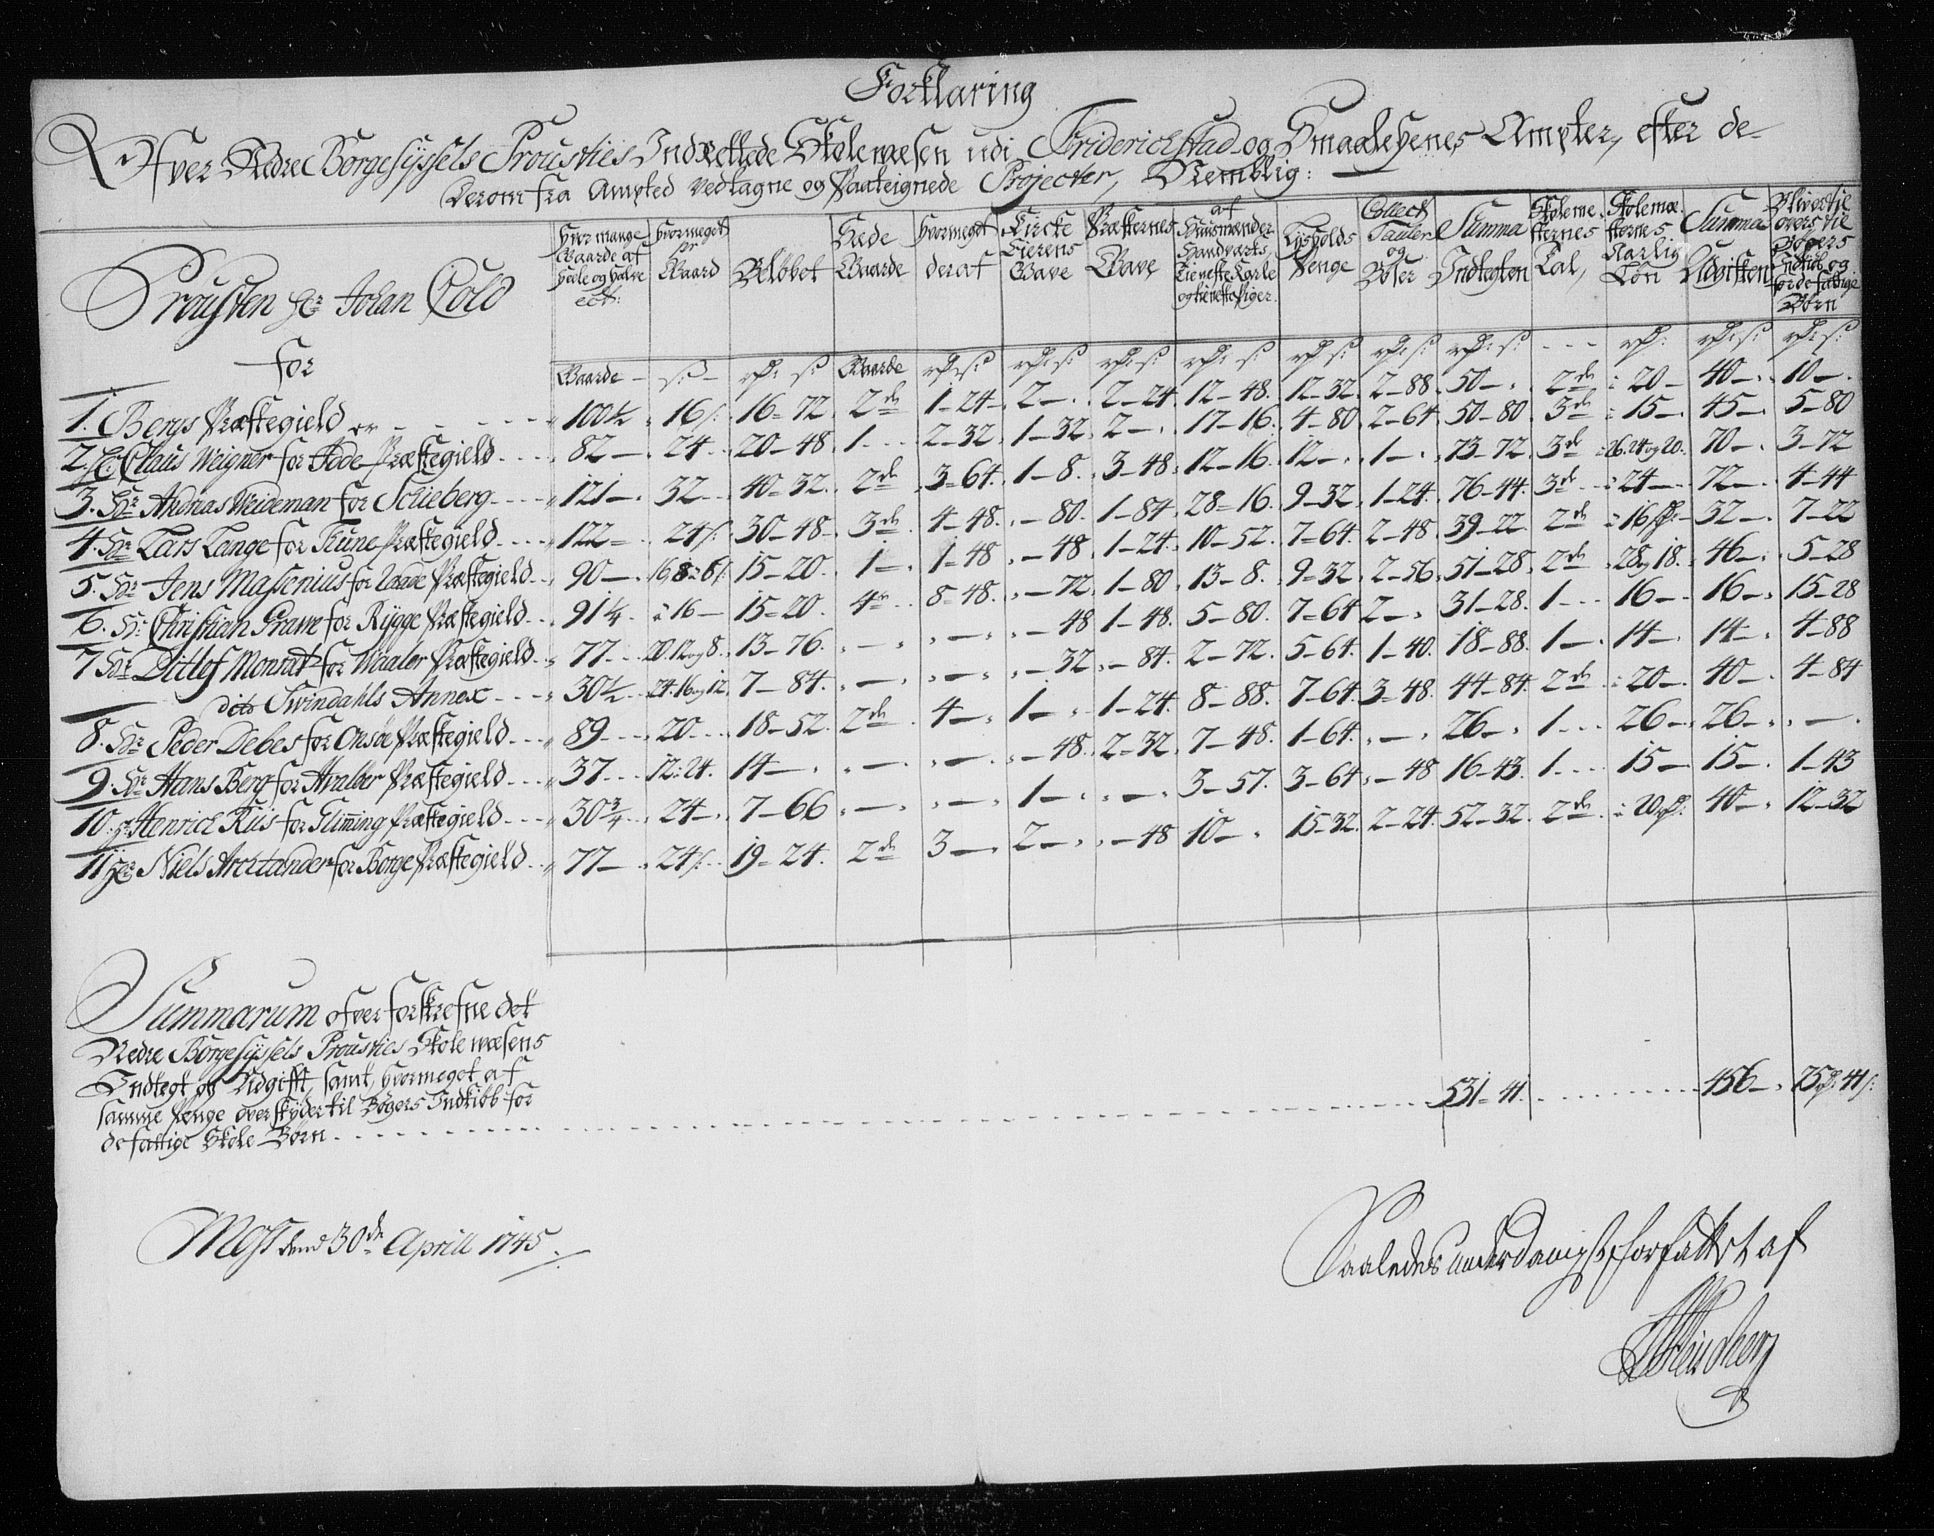 Forklaring
Ofver Nedre Borgesyssels Prousties Indrettede Skolewæsen udi Friderichstad og Smaalehenes Ampter, efter de
derom fra Ampted vedtagne og Paateignede Projecter, Nemblig:
Prousten Hr Johan Cold
for
Hvor mange Gaarde af Hele og halve ect:
hvormeget pr Gaard
Beløbet
Øede Gaarde
hvormeget deraf
Kircke Eierens Gave
Præsternes Gave
af Huusmænder Handværks Tieneste Karle og tieneste Piger
Lysholds Penge
Collect Tauler og Bøser
Summa Indtegten
Skoleme sternes Tal,
Skolemæ sternes Aarlig Løn
Summa Udgiften
Bliver til overs til Bøgers Indkiøb og for de fattige Børn
Gaarde s: rd: s: Gaarde rd: s: rd: s: rd: s: rd: s: rd: s: rd: s: rd: s: - - - rd: rd: s: rd: s:
1. Bergs Præstegield er 100½ 16 s. 16-72 2de 1-24 2-. 2-24 12-48 12-32 2-88 50-. 2de a 20- 40- 10-.
2. Hr. Claus Weigner for Ide Præstegield 82 24 20-48 1 2-32 1-32 2-. 17-16 4-80 2-64 50-80 3de a 15- 45- 5-80
3. Hr Andreas Weideman for Schieberg 121 32 40-32 2de 3-64 1-8 3-48 12-16 12-. 1-. 73-72 3de a 26. 24 og 20. 70- 3-72
4. Hr Lars Lange for Thune Præstegield 122 24 s. 30-48 3de 4-48 -80 1-84 28-16 9-32 1-24 76-44 3de a 24- 72- 4-44
5. Hr Jens Massenius for Raade Præstegield 90 16, 8 a 6 s. 15-20 1 1-48 -48 1-24 10-52 7-64 2-48 39-22 2de a 16 rd. 32- 7-22
6. Hr: Christian Grawe for Rygge Præstegield 91¼ a 16 15-20 4re 8-48 -72 1-80 13-8 9-32 2-56 51-28 2de 28 og 18. 46- 5-28
7 Hr Ditlef Monrat for Waaler Præstegield 77 20. 12 og 8. 13-76 - - -48 1-48 5-80 7-64 2-. 31-28 1 16- 16- 15-28
dito Svindahls Annex 30½ 24. 16 og 12 7-84 - - -32 -84 2-72 5-64 1-40 18-88 1 14- 14- 4-88
8. Hr Peder Debes for Onsøe Præstegield 89 20 18-52 2de 4-. 1-. 1-24 8-88 7-64 3-48 44-84 2de a 20- 40- 4-84
9. Hr Hans Berg for Hvaløer Præstegield 37 12 a 24. 14-. - - -48 2-32 7-48 1-64 -. 26-. 1 26- 26- -.
10. Hr Henrich Riis for Glimming Præstegield 30¾ 24 7-66 - - 1-. - 3-57 3-64 -48 16-43 1 15- 15- 1-43
11 Hr Niels Arctander for Borge Præstegield 77 24 s. 19-24 2de 3-. 2-. -48 10-. 15-32 2-24 52-32 2de a 20 rd: 40- 12-32
Summarum ofver forskrefne det
Nedre Borgesyssels Prousties Skole wæsens
Indtegt og Udgifft, samt, hvormeget af
samme Penge overskyder til Bøgers Indkiøb for
de fattige Skole Børn 531-41 456- 75 rd: 41 s:
Moss dend 30de Aprill 1745.
Saaledes underdanigst forfattet af